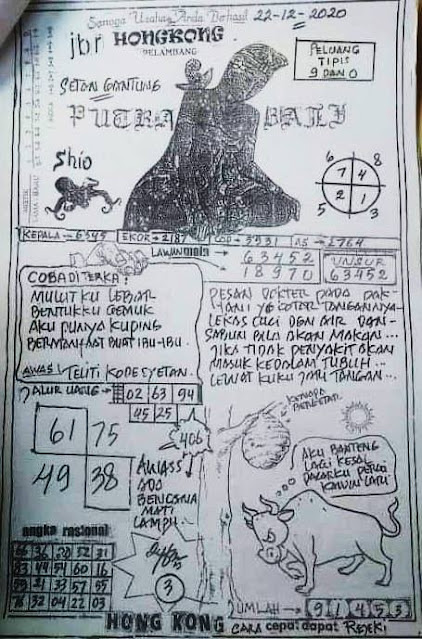 Semoga Usaha Anda Berhasil 22-12-2020
jbr HONGKONG
PELAMBANG
PELUANG
TIPIS
9 DAN 0
SETAN GANTUNG
PUTRA BALI
Shio
6 8
7 4
2 1
5 3
KEPALA → 6345 EKOR → 2187 COP → 5931 AS → 2764
LAWAN MAIN
63452
18970
UNSUR
63452
COBA DITERKA?
MULUT KU LEBAR
BENTUKKU GEMUK
AKU PUNYA KUPING
BERMANFAAT BUAT IBU-IBU.
AWAS! TELITI KODE SYETAN.
PESAN DOKTER PADA PAK
TANI YG KOTOR TANGANNYA
LEKAS CUCI DGN AIR DAN
SABUN BILA AKAN MAKAN...
JIKA TIDAK PENYAKIT AKAN
MASUK KEDALAM TUBUH...
LEWAT KUKU JARI TANGAN...
JALUR UANG → 02 63 94
45 25
406
61 75
49 38
AWASS
ADA
BENCANA
MATI
LAMPU..
KENAPA
BERGETAR
AKU BANTENG
LAGI KESAL
PACARKU PERGI
KAWIN LARI
angka rasional
66 36 20 52 31
83 49 54 60 16
59 21 33 57 55
76 32 04 22 03
3
JUMLAH → 9 1 4 5 3
HONG KONG CARA cepat dapat REJEKI